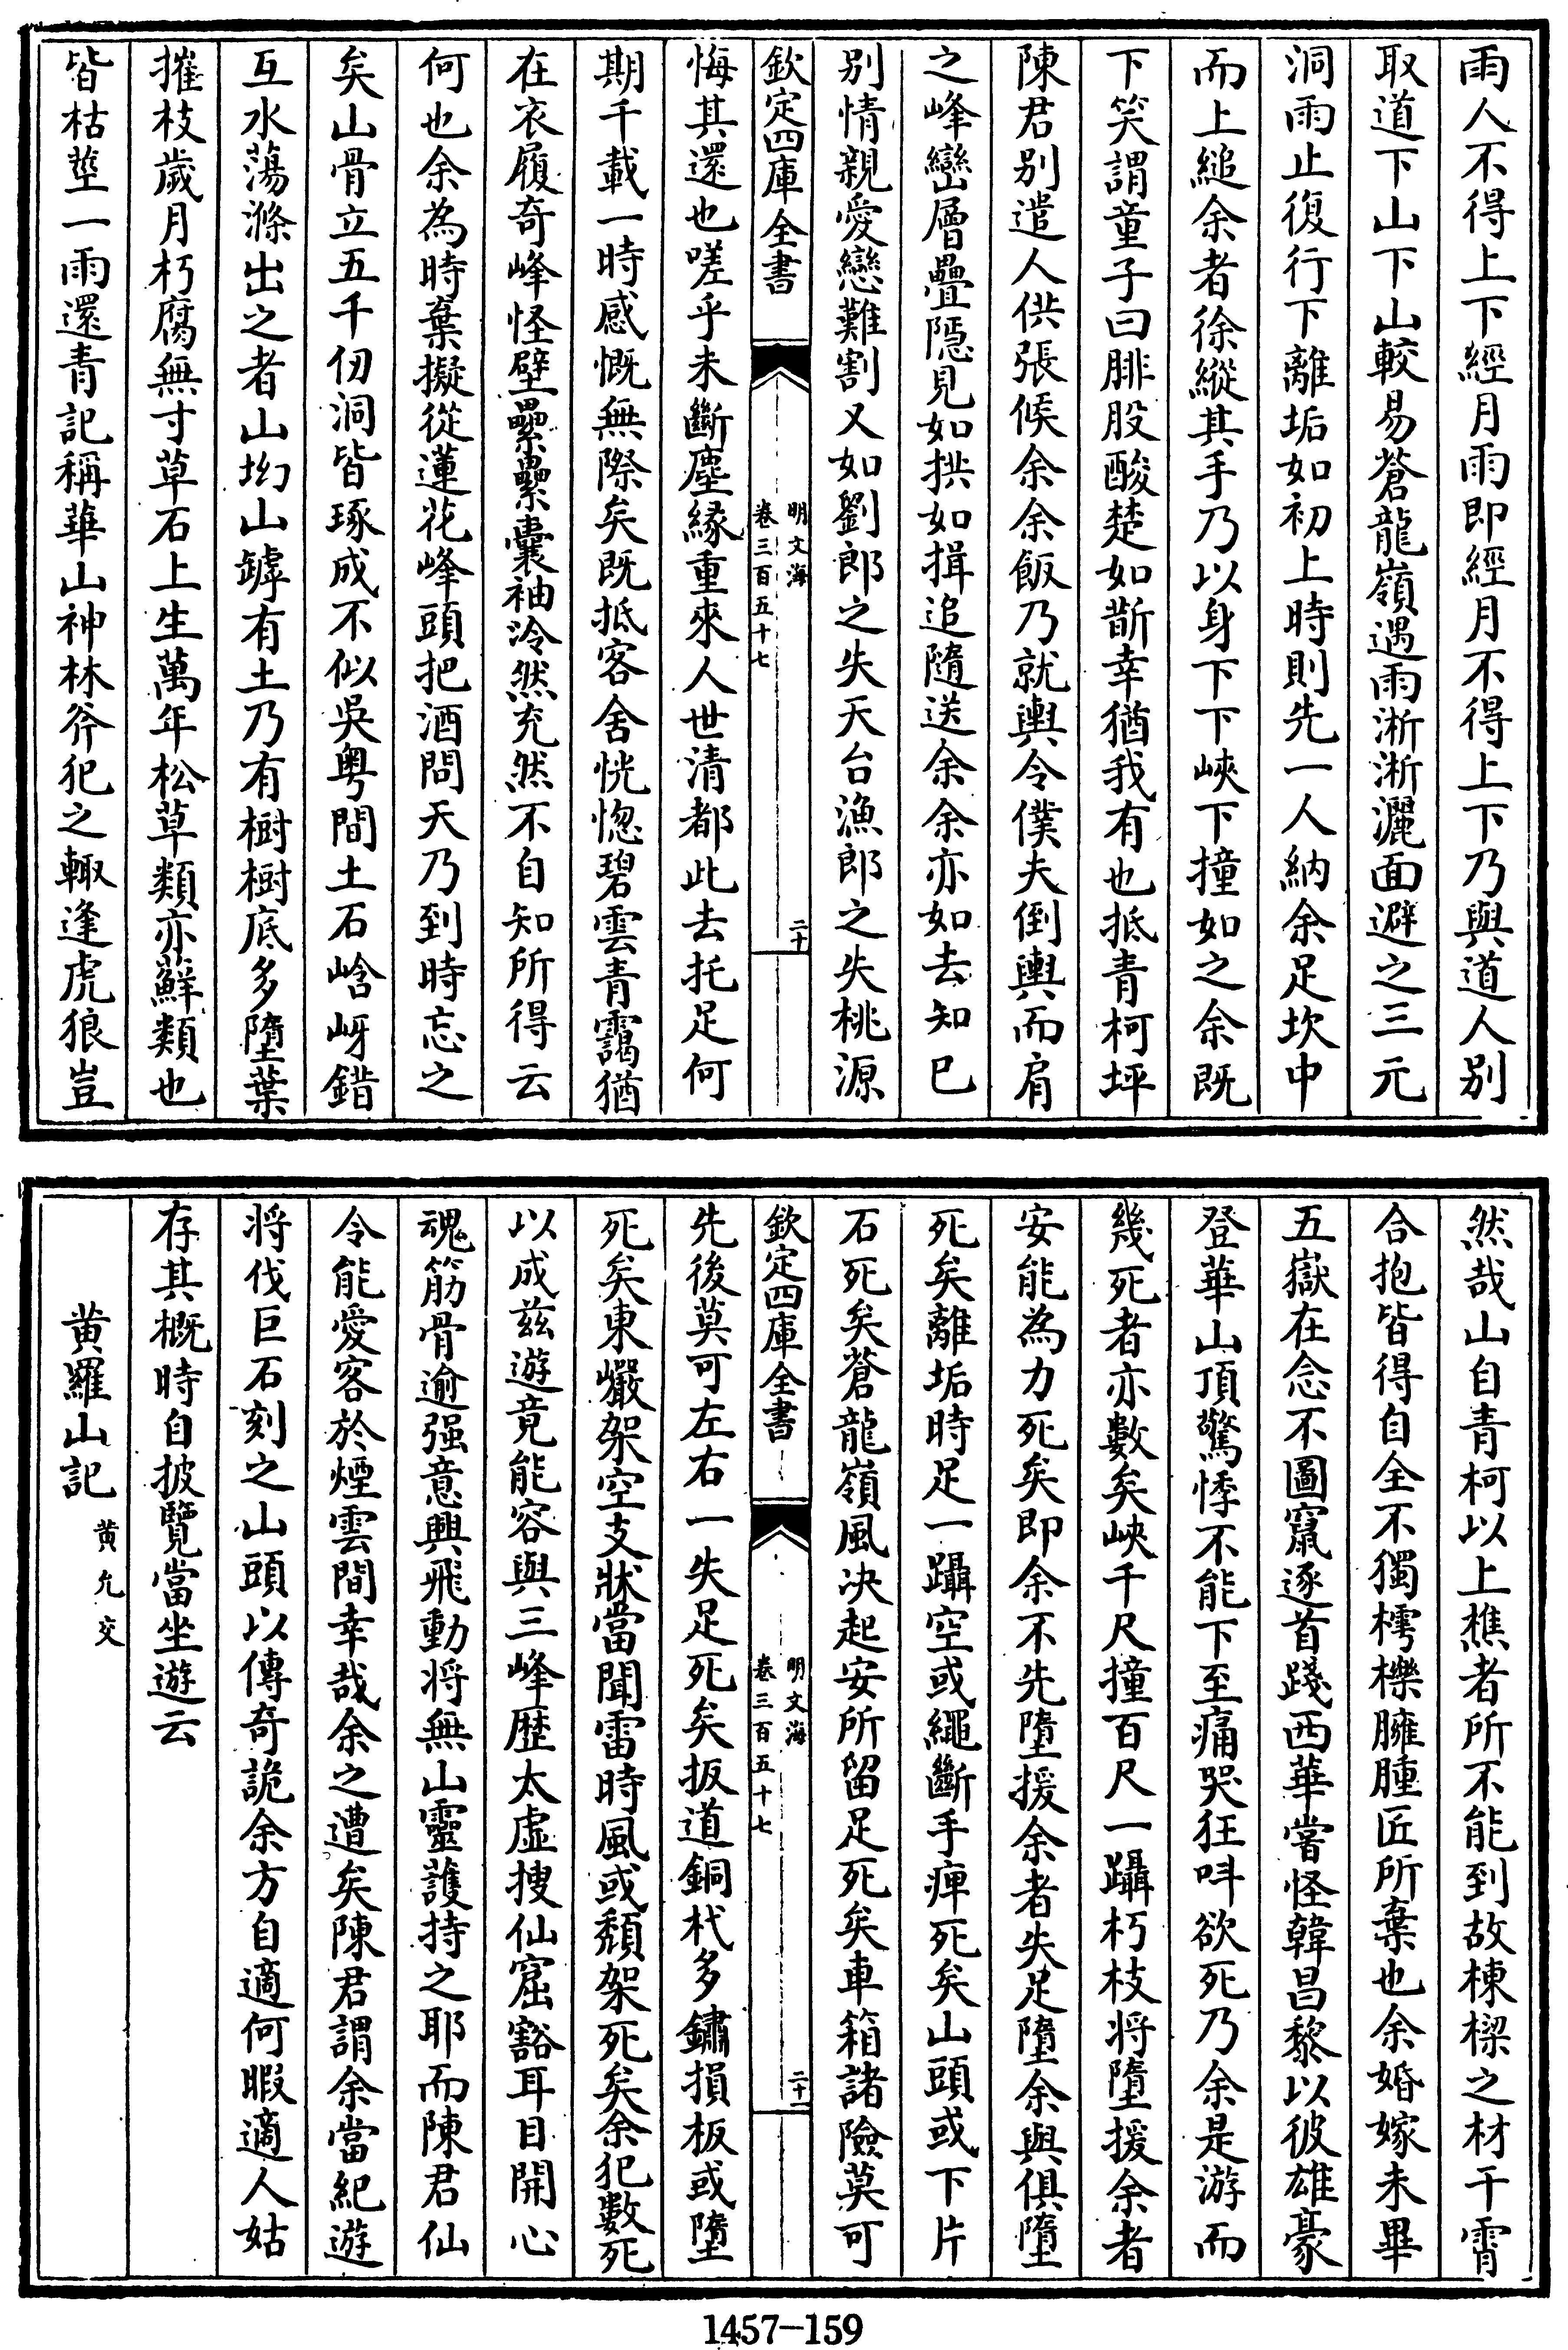 雨人不得上下經月雨即經月不得上下乃與道人别
取道下山下山較易蒼龍嶺遇雨淅淅灑面避之三元
洞雨止復行下離垢如初上時則先一人納余足坎中
而上縋余者徐縱其手乃以身下下峽下撞如之余既
下笑謂童子曰腓股酸楚如斮幸猶我有也抵青柯坪
陳君别遣人供張候余余飯乃就輿令僕夫倒輿而肩
之峰巒層疊隱見如拱如揖追隨送余余亦如去知已
别情親愛戀難割又如劉郎之失天台漁郎之失桃源
欽定四庫全書
明文海
卷三百五十七
二十
悔其還也嗟乎未斷塵緣重來人世清都此去托足何
期千載一時感慨無際矣既抵客舍恍惚碧雲青靄猶
在衣履奇峰怪壁纍纍囊袖泠然充然不自知所得云
何也余為時棄擬從蓮花峰頭把酒問天乃到時忘之
矣山骨立五千仞洞皆琢成不似吳粤間土石崡岈錯
互水蕩滌出之者山坳山罅有土乃有樹樹底多墮葉
摧枝歲月朽腐無寸草石上生萬年松草類亦蘚類也
皆枯莖一雨還青記稱華山神林斧犯之輙逢虎狼豈
然哉山自青柯以上樵者所不能到故棟樑之材干霄
合抱皆得自全不獨樗櫟臃腫匠所棄也余婚嫁未畢
五嶽在念不圖竄逐首踐西華嘗怪韓昌黎以彼雄豪
登華山頂驚悸不能下至痛哭狂呌欲死乃余是游而
幾死者亦數矣峽千尺撞百尺一躡朽枝將墮援余者
安能為力死矣即余不先墮援余者失足墮余與俱墮
死矣離垢時足一躡空或繩斷手痺死矣山頭或下片
石死矣蒼龍嶺風决起安所留足死矣車箱諸險莫可
欽定四庫全書
明文海
卷三百五十七
二十一
先後莫可左右一失足死矣扳道銅杙多鏽損板或墮
死矣東巖架空支狀當聞雷時風或頹架死矣余犯數死
以成兹遊竟能容與三峰歴太虛搜仙窟豁耳目開心
魂筋骨逾强意興飛動將無山靈護持之耶而陳君仙
令能愛客於煙雲間幸哉余之遭矣陳君謂余當紀遊
將伐巨石刻之山頭以傳奇詭余方自適何暇適人姑
存其概時自披覽當坐遊云
黄羅山記 黄允交
1457-159